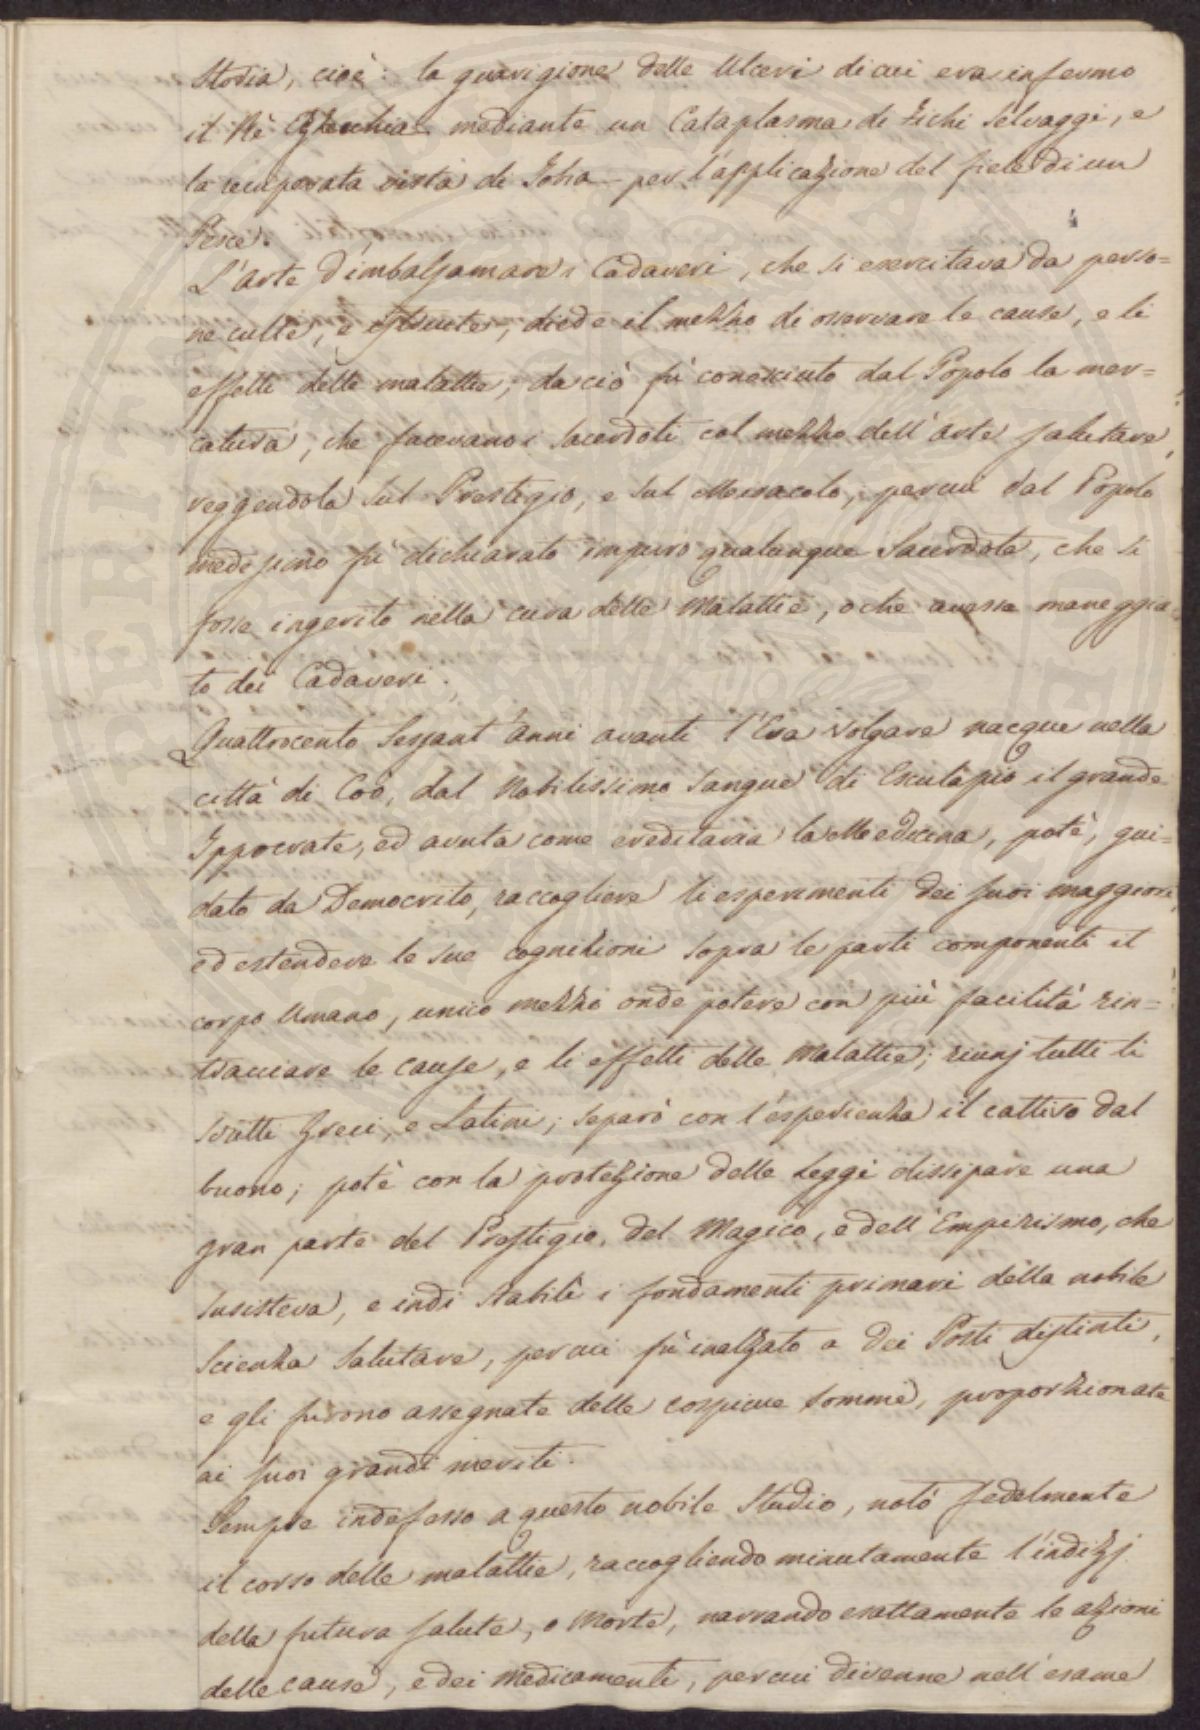 Storia, cioè: la guarigione delle Ulceri di cui era infermo
il Rè Ezecchia mediante un Cataplasma di Fichi Selvaggi, e
la recuperata vista di Tobia per l'applicazione del fiele di un
Pesce.
L'arte d'imbalsamare i Cadaveri, che si esercitava da perso=
ne culte, e istruite, diede il mezzo di osservare le cause, e li
effetti delle malattie; da ciò fù conosciuto dal Popolo la mer=
catura, che facevano i Sacerdoti col mezzo dell'arte salutare,
reggendola sul Prestigio, e sul Meracolo, percui dal Popolo
medesimo fù dichiarato impuro qualunque Sacerdote, che si
fosse ingerito nella cura delle Malattie, o che avesse maneggia
to dei Cadaveri.
Quattrocento Sessant'anni avanti l'Era Volgare nacque nella
città di Coò, dal Nobilissimo Sangue di Esculapio il grande
Ippocrate, ed avuta come ereditaria la Medicina, potè, gui=
dato da Democrito, raccogliere li esperimenti dei suoi maggiori,
ed estendere le sue cognizioni sopra le parti componenti il
corpo Umano, unico mezzo onde potere con più facilità rin=
tracciare le cause, e li effetti delle Malattie; riunj tutti li
scritti Greci, e Latini; separò con l'esperienza il cattivo dal
buono; potè con la protezione delle Leggi dissipare una
gran parte del Prestigio, del Magico, e dell'Empirismo, che
susisteva, e indi stabilì i fondamenti primari della nobile
Scienza Salutare, percui fù inalzato a dei Posti distinti,
e gli furono assegnate delle cospicue Somme, proporzionate
ai suoi grandi meriti.
Sempre indefesso a questo nobile Studio, notò fedelmente
il corso delle malattie, raccogliendo minutamente l'indizj
della futura salute, o Morte, narrando esattamente le azioni
delle cause, e dei Medicamenti, percui divenne nell'esame